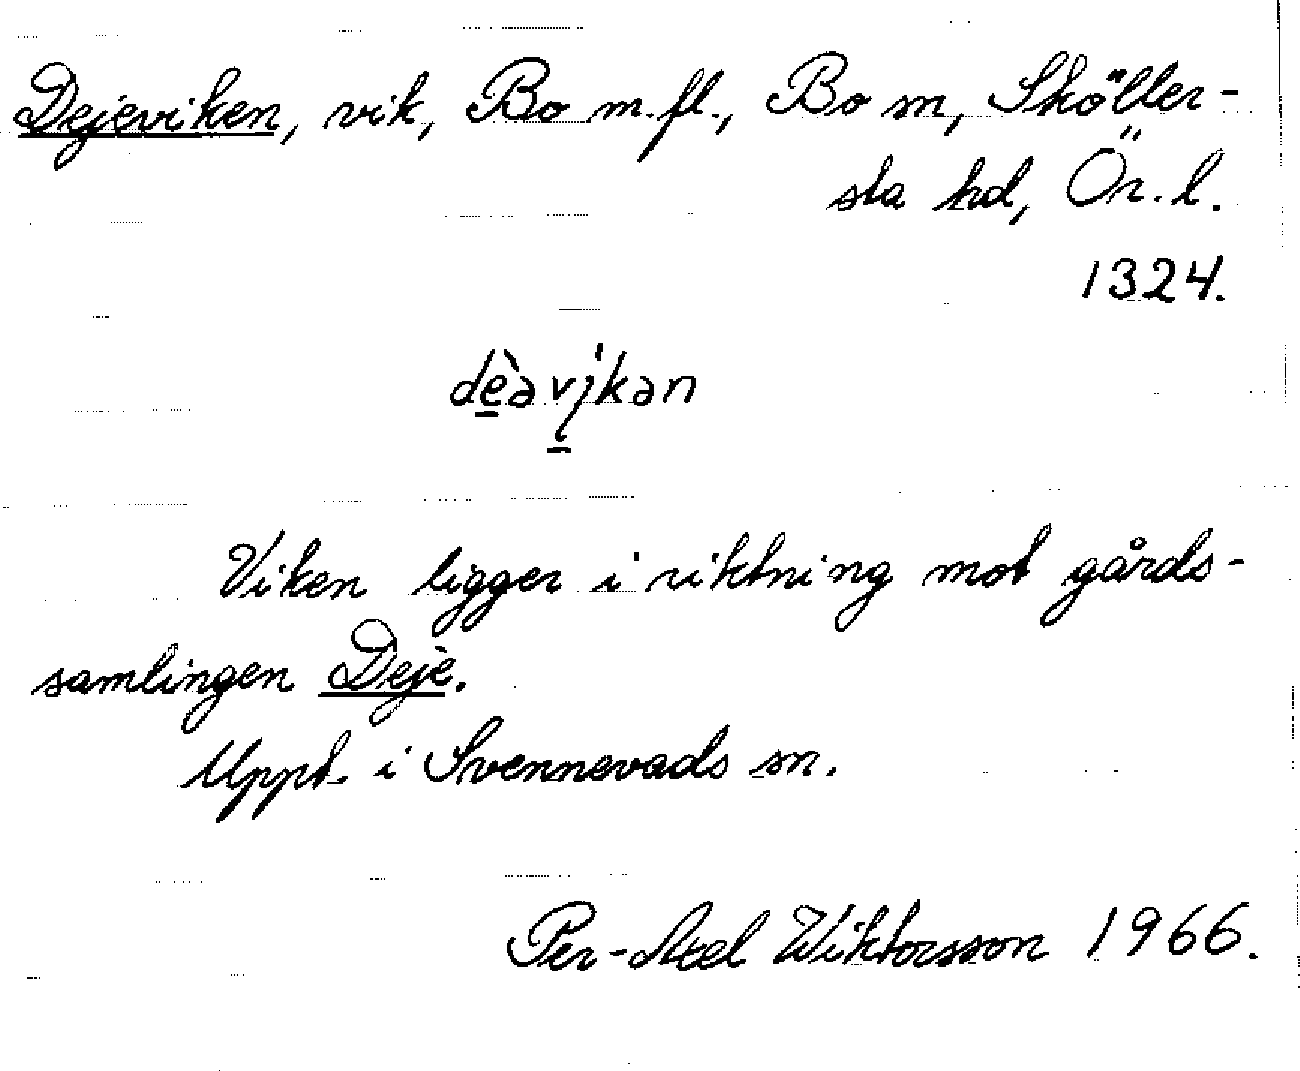 Dejeviken, vik, Bo m.fl., Bo sn, Sköller-
sta hd, Ör. l.
1324.
dèavi̇kan
Viken ligger i riktning mot gårds-
samlingen Deje.
Uppt. i Svennevads sn.
Per-Axel Wiktorsson 1966.